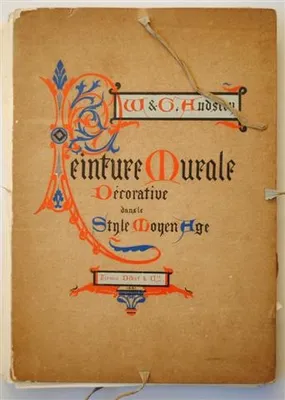 W & G. Audsley
Peinture Murale
Décorative
dans le
Style Moyen Age
Firmin Didot & Cie